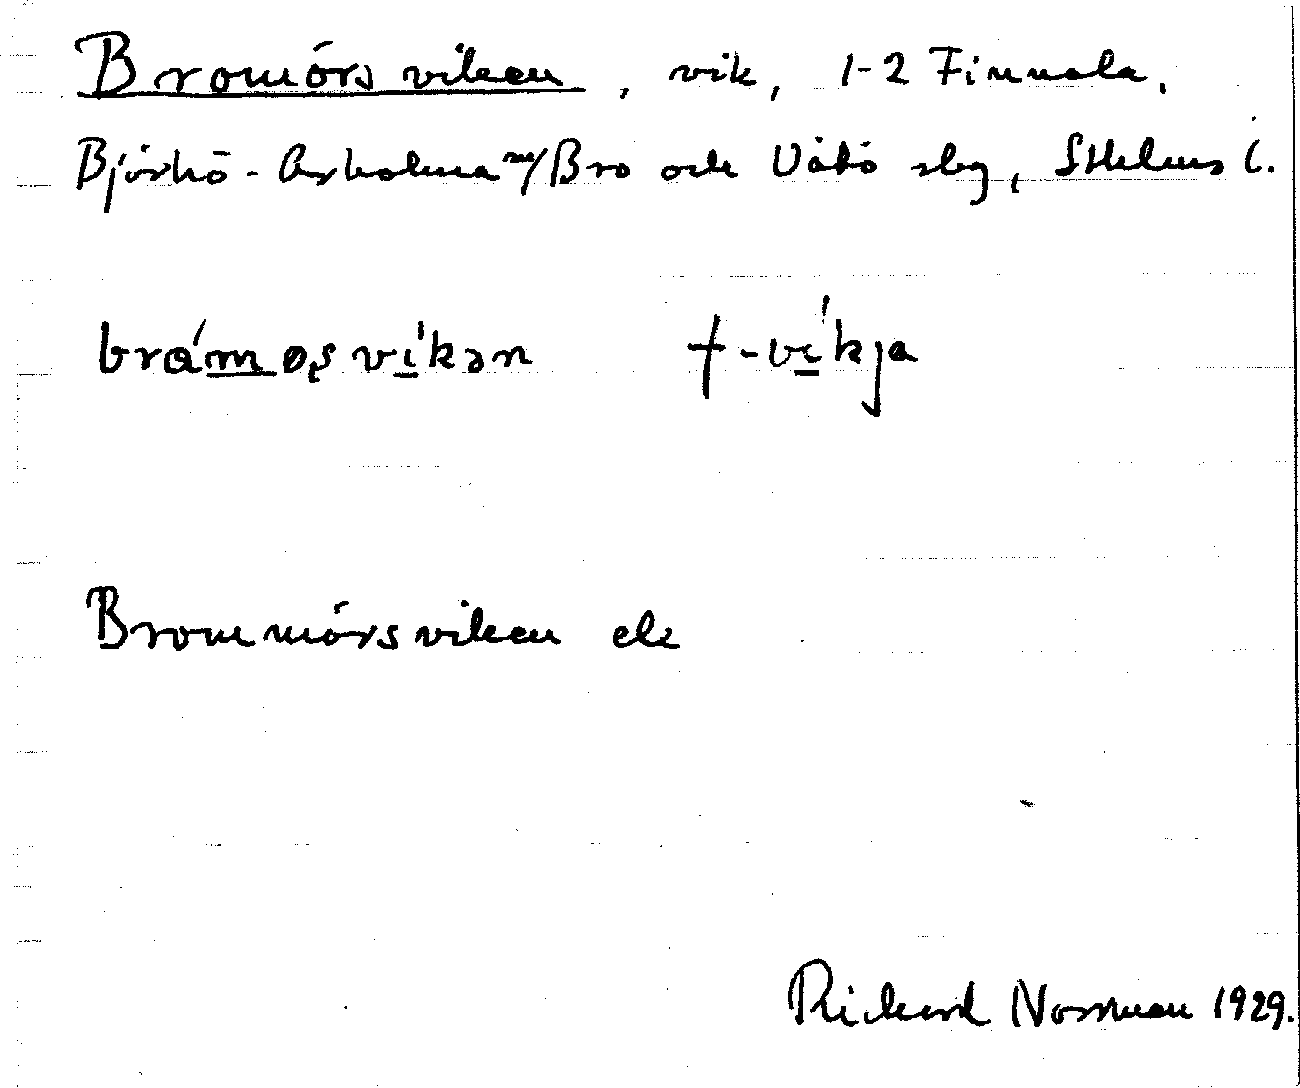 Bromörsviken, vik, 1-2 Finnala,
Björkö-Arholma sn/Bro och Vätö slg, Sthlms l.
brámøşvíkən †-víkja
Brommörsviken ek
Rickard Norrman 1929.